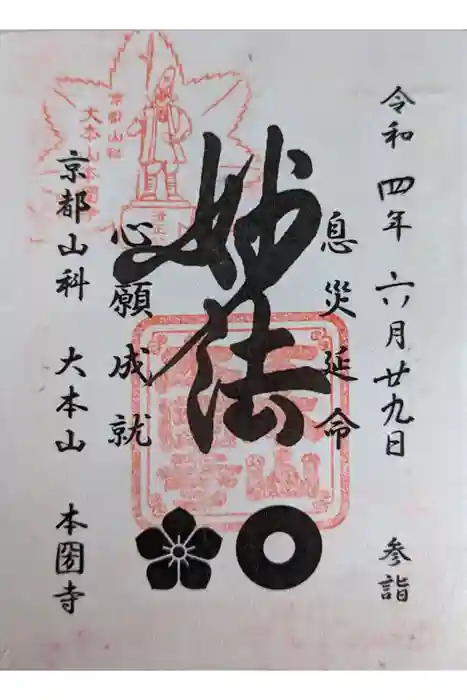 令和四年六月廿九日 参詣
息災延命
妙法
心願成就
京都山科 大本山 本圀寺
京都山科
大本山本圀寺